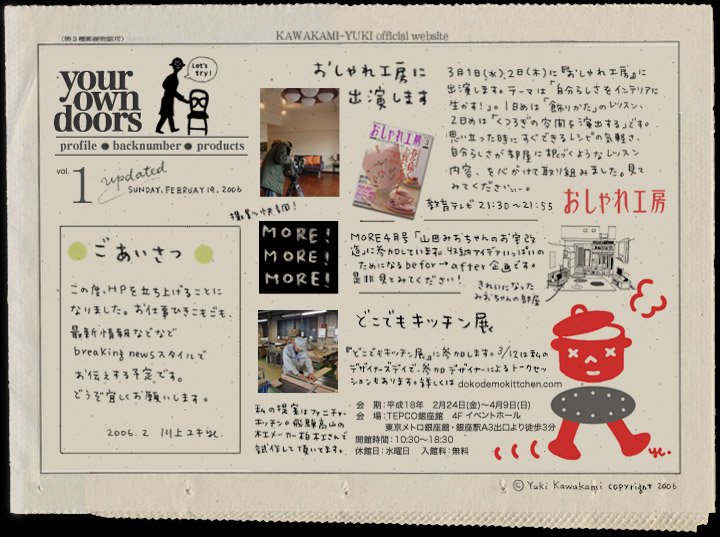 (第3種郵便物認可)
KAWAKAMI-YUKI official website
your
own
doors
Let's
try!
profile ● backnumber ● products
vol. 1
updated
SUNDAY, FEBRUARY 19, 2006
ごあいさつ
この度、HPを立ち上げることに
なりました。お仕事ひきこもごも、
最新情報などなど
breaking newsスタイルで
お伝えする予定です。
どうぞ宜しくお願いします。
2006.2 川上ユキ
おしゃれ工房に
出演します
3月1日(水)、2日(木)に『おしゃれ工房』に
出演します。テーマは「自分らしさをインテリアに
生かす!」。1日めは「飾りかた」のレッスン、
2日めは「くつろぎの空間を演出する」です。
思い立った時にすぐできるレシピの気軽さ、
自分らしさが部屋に根づくようなレッスン
内容、を心がけて取り組みました。見て
みてくださいー。
教育テレビ 21:30〜21:55
おしゃれ工房
おしゃれ工房
撮影は快調!
MORE!
MORE!
MORE!
MORE4月号「山田みおちゃんのお宅改
造」に参加しています。収納アイデアいっぱいの
ためになるbefor→after企画です。
是非見てみてください!
きれいになった
みおちゃんの部屋
どこでもキッチン展
『どこでもキッチン展』に参加します。3/12は私の
デザイナーズデイで、参加デザイナーによるトークセッ
ションもあります。詳しくは dokodemokittchen.com
私の提案はファニチャー
キッチン。飛騨高山の
木工メーカー柏木工さんで
試作して頂いてます。
会 期:平成18年 2月24日(金)〜4月9日(日)
会 場:TEPCO銀座館 4F イベントホール
東京メトロ銀座線・銀座駅A3出口より徒歩3分
開館時間:10:30〜18:30
休館日:水曜日 入館料:無料
© Yuki Kawakami copyright 2006